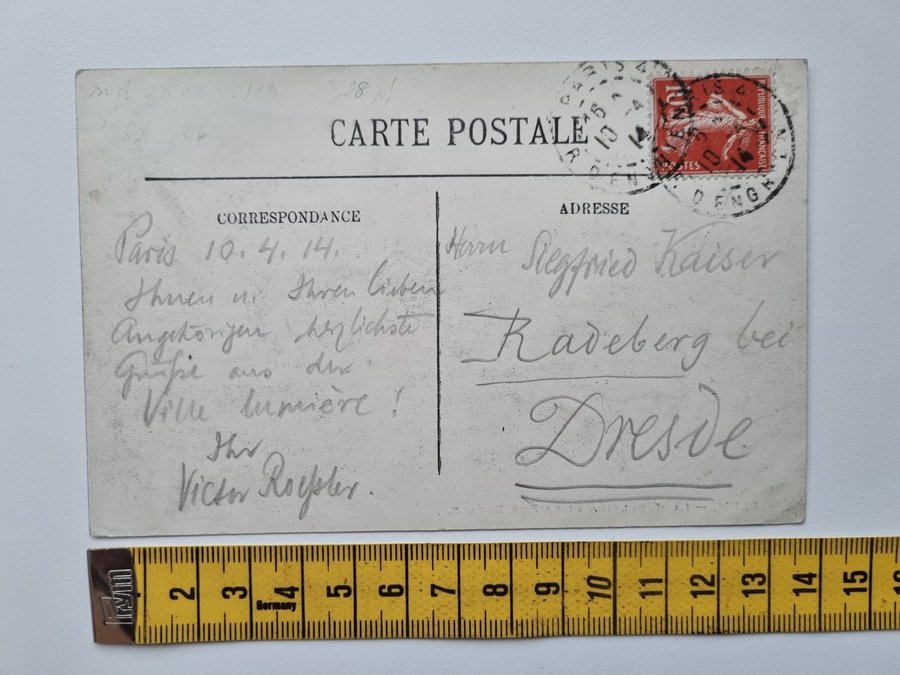 CARTE POSTALE
CORRESPONDANCE
ADRESSE
Paris 10. 4. 14.
Ihnen u. Ihren lieben
Angehörigen herzlichste
Grüße aus der
Ville lumière!
Ihr
Victor Roeßler.
Herrn Siegfried Kaiser
Radeberg bei
Dresde
10
POSTES
REPUBLIQUE FRANÇAISE
prym
2 3 4 5 6 7 8 9 10 11 12 13 14 15
Germany